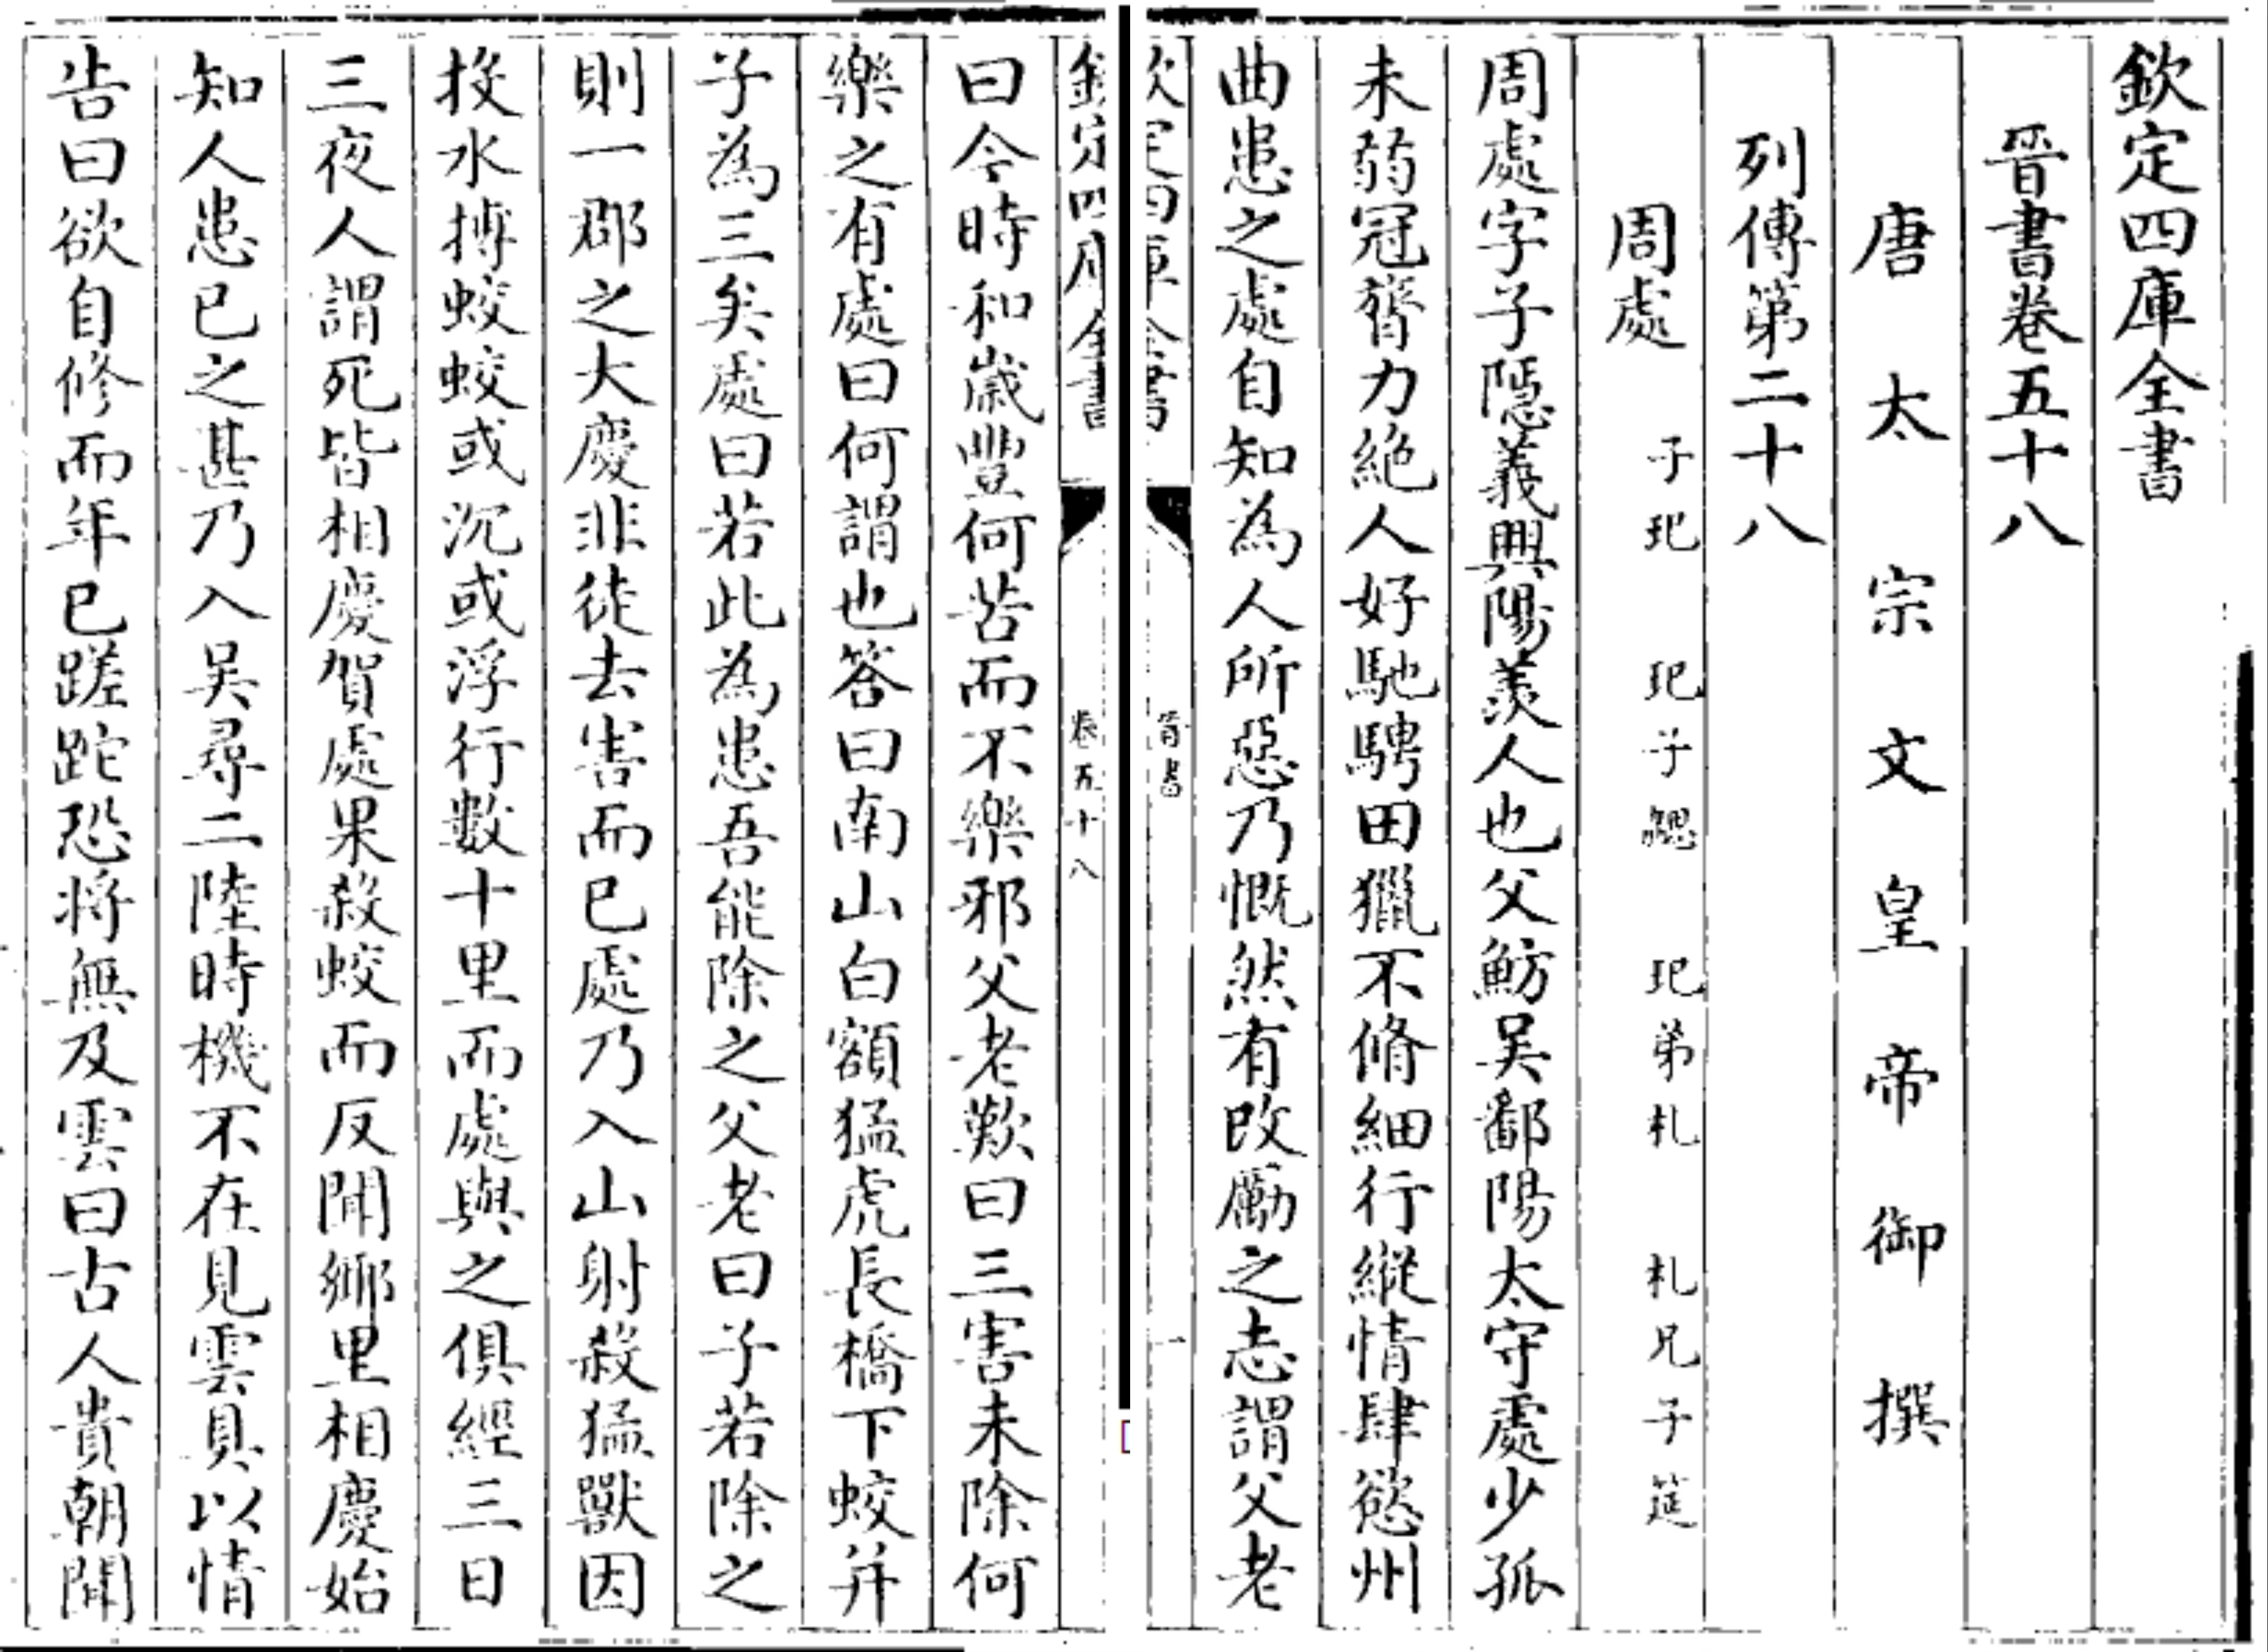 欽定四庫全書
晉書卷五十八
唐太宗文皇帝御撰
列傳第二十八
周處 子玘 玘子勰 玘弟札 札兄子筵
周處字子隱義興陽羨人也父魴吳鄱陽太守處少孤
未弱冠膂力絶人好馳騁田獵不脩細行縱情肆慾州
曲患之處自知為人所惡乃慨然有改勵之志謂父老
欽定四庫全書 晉書 一
欽定四庫全書 卷五十八
曰今時和歲豐何苦而不樂邪父老歎曰三害未除何
樂之有處曰何謂也答曰南山白額猛虎長橋下蛟并
子為三矣處曰若此為患吾能除之父老曰子若除之
則一郡之大慶非徒去害而已處乃入山射殺猛獸因
投水搏蛟蛟或沉或浮行數十里而處與之俱經三日
三夜人謂死皆相慶賀處果殺蛟而反聞鄉里相慶始
知人患已之甚乃入吳尋二陸時機不在見雲具以情
告曰欲自修而年已蹉跎恐將無及雲曰古人貴朝聞